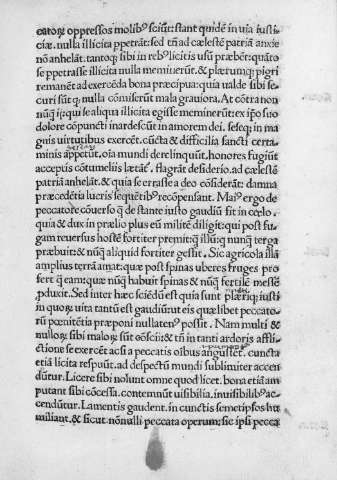 catoꝝ oppressos molibꝰ sciūt: stant quidē in uia iusti
ciæ. nulla illicita ppetrāt: sed tn̄ ad cælestē patriā anxie
nō anhelāt. tantoqꝫ sibi in rebꝰ licitis usū præbēt: quāto
se ppetrasse illicita nulla meminerūt. & plærumqꝫ pigri
remanēt ad exercēda bona præcipua: quia ualde sibi se
curi sūt qꝫ nulla cōmiserūt mala grauiora. At cōtra non
nūqꝫ ii: qui se aliqua illicita egisse meminerūt: ex ip̄o suo
dolore cōpuncti inardescūt in amorem dei. seseqꝫ in ma
gnis uirtutibus exercēt. cūcta & difficilia sancti certa
minis appetūt. oīa mundi derelinquūt. honores fugiūt
acceptis cōtumeliis lætāt᷑. flagrāt desiderio. ad cælestē
patriā anhelāt. & quia se errasse a deo cōsiderāt: damna
præcedētia lucris sequētibꝰ recōpensant. Maiꝰ ergo de
peccatore cōuerso qꝫ de stante iusto gaudiū fit in cœlo.
quia & dux in prælio plus eū militē diligit: qui post fu
gam reuersus hostē fortiter premit: qꝫ illū: qui nunqꝫ terga
præbuit: & nūqꝫ aliquid fortiter gessit. Sic agricola illā
amplius terrā amat: quæ post spinas uberes fruges pro
fert qꝫ eam: quæ nūqꝫ habuit spinas & nūqꝫ fertilē messē
ꝓduxit. Sed inter hæc sciēdū est quia sunt plæriqꝫ iusti
in quoꝝ uita tantū est gaudiū: ut eis quælibet peccato-
rū pœnitētia præponi nullatenꝰ possit. Nam multi &
nulloꝝ sibi maloꝝ sūt cōscii: & tn̄ in tanti ardoris afflī
ctione se exercēt acsi a peccatis oībus angustēt᷑. cuncta
etiā licita respuūt. ad despectū mundi sublimiter accen
dūtur. Licere sibi nolunt omne quod licet. bona etiā am
putant sibi cōcessa. contemnūt uisibilia. inuisibilibꝰ ac-
cendūtur. Lamentis gaudent. in cunctis semetip̄sos hu
miliant. & sicut nōnulli peccata operum: sic ip̄si pecca